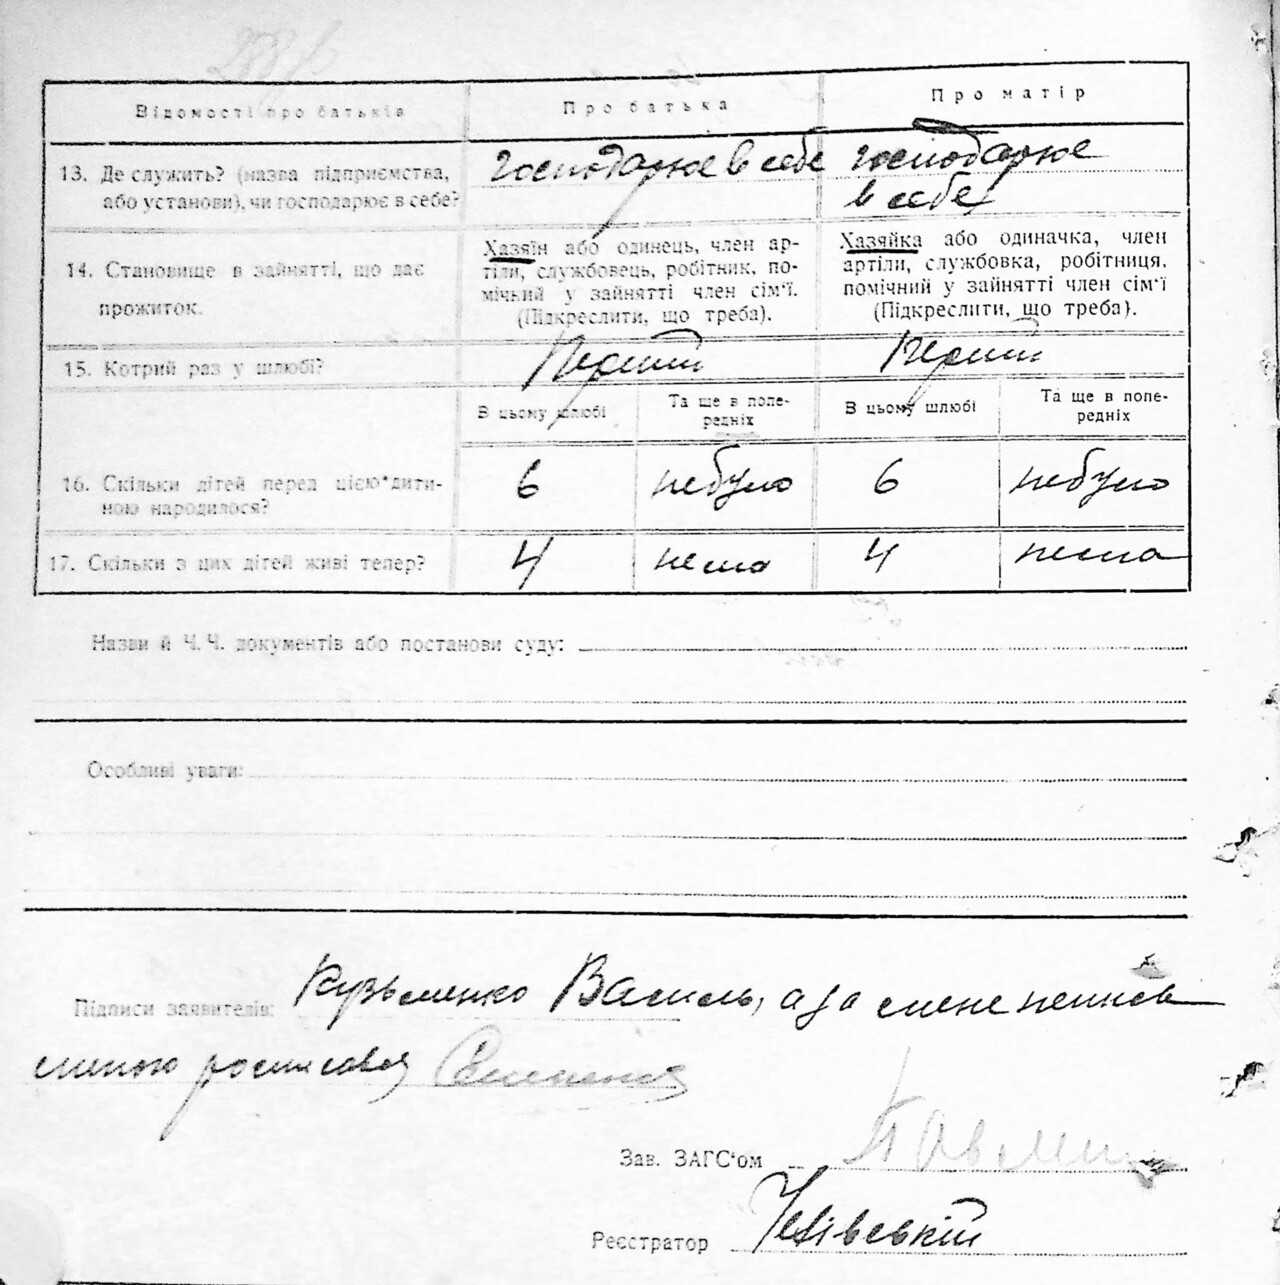 Відомості про батьків
Про батька
Про матір
13. Де служить? (назва підприємства,
або установи), чи господарює в себе?
господарює в себе
господарює
в себе
14. Становище в зайнятті, що дає
прожиток.
Хазяїн або одинець, член ар-
тіли, службовець, робітник, по-
мічний у зайнятті член сім'ї.
(Підкреслити, що треба).
Хазяйка або одиначка, член
артіли, службовка, робітниця,
помічний у зайнятті член сім'ї
(Підкреслити, що треба).
15. Котрий раз у шлюбі?
Перший
Перший
В цьому шлюбі
Та ще в попе-
редніх
В цьому шлюбі
Та ще в попе-
редніх
16. Скільки дітей перед цією дити-
ною народилося?
6
небуло
6
небуло
17. Скільки з цих дітей живі тепер?
4
нема
4
нема
Назви й Ч. Ч. документів або постанови суду:
Особливі уваги:
Підписи заявителів: Кузьменко Василь, а за мене
росписався
Зав. ЗАГС'ом
Реєстратор